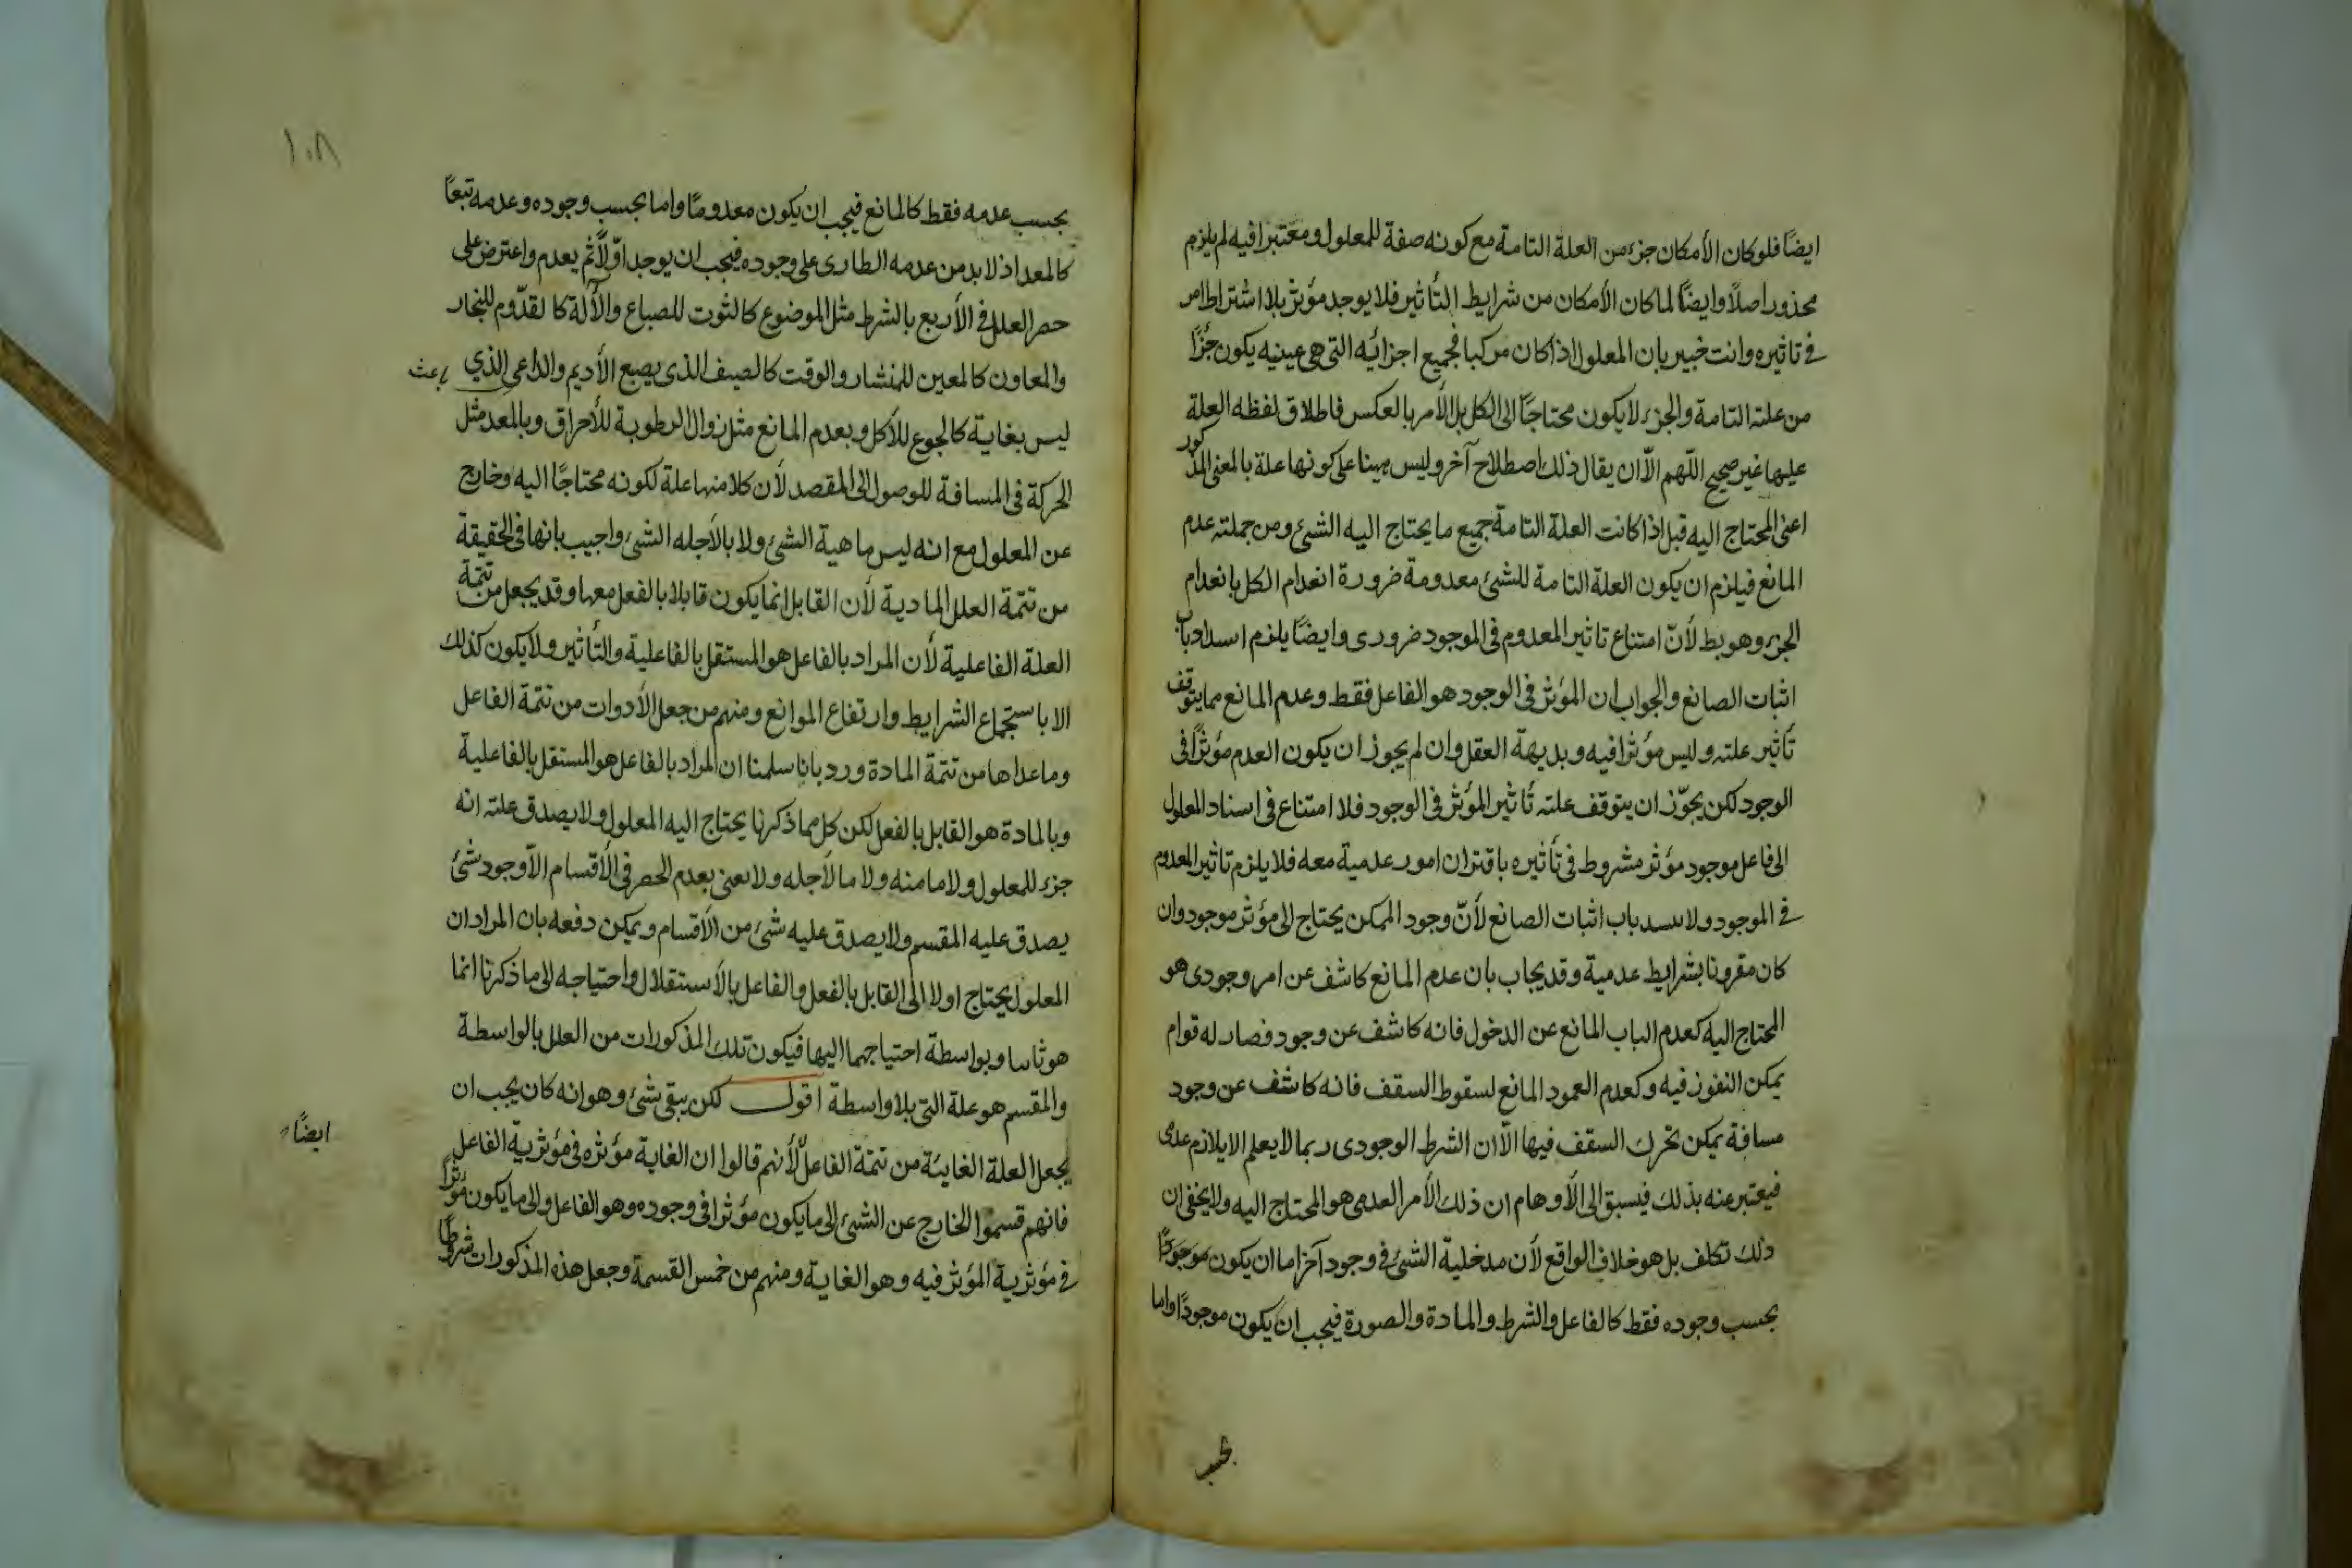 ايضًا فلوكان الأمكان جزء من العلة التامة مع كونه صفة للمعلول ومعتبرا فيه لم يلزم
محذور اصلًا وايضًا لما كان الأمكان من شرايط التأثير فلا يوجد مؤثر بلا اشتراط امر
في تاثيره وانت خبير بان المعلول اذا كان مركبا فجميع اجزائه التى هى عينه يكون جزًا
من علته التامة والجزء لا يكون محتاجًا الى الكل بل الأمر بالعكس فاطلاق لفظه العلة
عليها غير صحيح اللّهم الّا ان يقال ذلك اصطلاح آخر وليس مبنيا على كونها علة بالمعنى المذكور
اعنى المحتاج اليه قيل اذا كانت العلة التامة جميع ما يحتاج اليه الشئ ومن جملته عدم
المانع فيلزم ان يكون العلة التامة للشئ معدومة ضرورة انعدام الكل بانعدام
الجزء وهو بط لأنّ امتناع تاثير المعدوم فى الموجود ضرورى وايضًا يلزم اسداد باب
اثبات الصانع والجواب ان المؤثر فى الوجود هو الفاعل فقط وعدم المانع مما يتوقف
تأثير علته وليس مؤثرا فيه وبديهة العقل وان لم يجوز ان يكون العدم مؤثرًا فى
الوجود لكن يجوّز ان يتوقف علته تأثير المؤثر فى الوجود فلا امتناع فى اسناد المعلول
الى فاعل موجود مؤثر مشروط فى تأثيره باقتران امور عدمية معه فلا يلزم تاثير المعدوم
في الموجود ولا سد باب اثبات الصانع لأنّ وجود الممكن يحتاج الى مؤثر موجود وان
كان مقرونا بشرايط عدمية وقد يجاب بان عدم المانع كاشف عن امر وجودى هو
المحتاج اليه كعدم الباب المانع عن الدخول فانه كاشف عن وجود فصار له قوام
يمكن النفوز فيه وكعدم العمود المانع لسقوط السقف فانه كاشف عن وجود
مسافة يمكن تحرك السقف فيها الّا ان الشرط الوجودى ربما لا يعلم الا بلازم عدمى
فيعتبر عنه بذلك فيسبق الى الأوهام ان ذلك الأمر العدمى هو المحتاج اليه ولا يخفى ان
ذلك تكلف بل هو خلاف الواقع لأن مدخلية الشئ فى وجود آخر اما ان يكون موجودًا
بحسب وجوده فقط كالفاعل والشرط والمادة والصورة فيجب ان يكون موجودًا واما
بحسب
١٠٨
بحسب عدمه فقط كالمانع فيجب ان يكون معدومًا واما بحسب وجوده وعدمه تبعًا
كالمعد اذ لا بد من عدمه الطارى على وجوده فيجب ان يوجد اوّلًا ثم يعدم واعترض على
حصر العلل فى الأربع بالشرط مثل الموضوع كالثوب للصباغ والآلة كالقدّوم للنجار
والمعاون كالمعين للمنشار والوقت كالصيف الذى يصبع الأديم والداعى الذي
باعث
ليس بغاية كالجوع للأكل وبعدم المانع مثل زوال الرطوبة للأحراق وبالمعد مثل
الحركة فى المسافة للوصول الى المقصد لأن كلا منها علة لكونه محتاجًا اليه وخارج
عن المعلول مع انه ليس ماهية الشئ ولا بالأجله الشئ واجيب بانها فى الحقيقة
من تتمة العلل المادية لأن القابل انما يكون قابلا بالفعل معها وقد يجعل من تتمة
العلة الفاعلية لأن المراد بالفاعل هو المستقل بالفاعلية والتأثير ولا يكون كذلك
الا باستجماع الشرايط وارتفاع الموانع ومنهم من جعل الأدوات من تتمة الفاعل
وما عداها من تتمة المادة ورد بانا سلمنا ان المراد بالفاعل هو المستقل بالفاعلية
وبالمادة هو القابل بالفعل لكن كل مما ذكرنا يحتاج اليه المعلول ولا يصدق علته انه
جزء للمعلول ولا ما منه ولا ما لأجله ولا نعنى بعدم الحصر فى الأقسام الّا وجود شئ
يصدق عليه المقسم ولا يصدق عليه شئ من الأقسام ويمكن دفعه بان المراد ان
المعلول يحتاج اولا الى القابل بالفعل والفاعل بالأستقلال واحتياجه الى ما ذكرنا انما
هو ثانيا وبواسطة احتياجهما اليها فيكون تلك المذكورات من العلل بالواسطة
والمقسم هو علة التى بلا واسطة اقول لكن يبقى شئ وهو انه كان يجب ان
ايضًا
يجعل العلة الغايئة من تتمة الفاعل لأنهم قالوا ان الغاية مؤثره فى مؤثرية الفاعل
فانهم قسموا الخارج عن الشئ الى ما يكون مؤثرا فى وجوده وهو الفاعل والى ما يكون مؤثرًا
في مؤثرية المؤثر فيه وهو الغاية ومنهم من خمس القسمة وجعل هذه المذكورات شروطًا